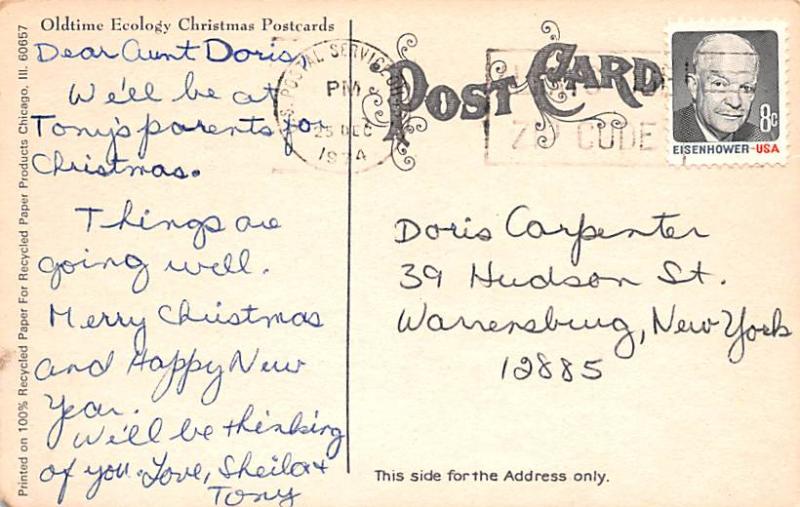 Oldtime Ecology Christmas Postcards
Dear Aunt Doris,
We'll be at
Tony's parents for
Christmas.
Things are
going well.
Merry Christmas
and Happy New
Year.
We'll be thinking
of you. Love, Sheila &
Tony
Printed on 100% Recycled Paper For Recycled Paper Products Chicago, Ill. 60657
U.S. POSTAL SERVICE
PM
25 DEC
1974
POST CARD
ZIP CODE
8c
EISENHOWER-USA
Doris Carpenter
39 Hudson St.
Warrensburg, New York
12885
This side for the Address only.